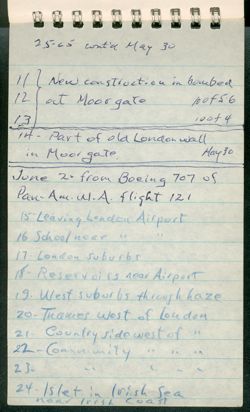 25-65 cont'd May 30
11 } New construction in bombed
12 out Moorgate 10 of 56
13 10 of 4
14- Part of old London wall
in Moorgate May 30
June 2- from Boeing 707 of
Pan-Am. W.A. flight 121
15 Leaving London Airport
16 School near " "
17- London suburbs
18- Reservoirs near Airport
19- West suburbs through haze
20- Thames west of London
21- Countryside west of "
22- Community " "
23- " " "
24- Islet in Irish Sea
near Irish Coast